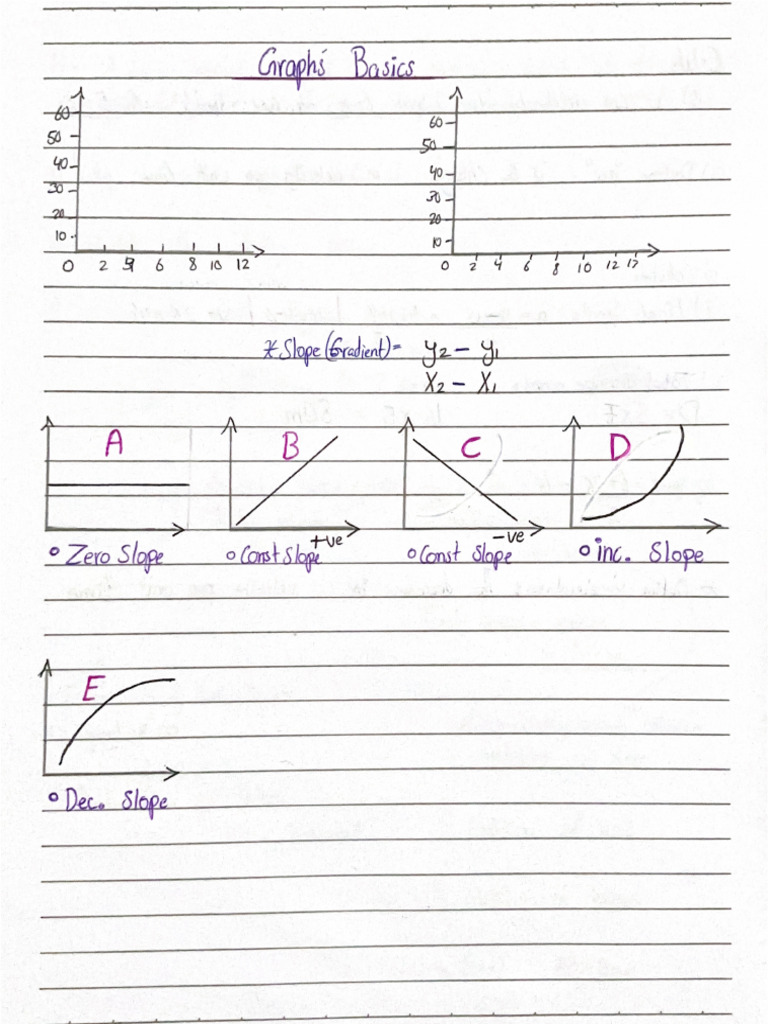 Graphs Basics
60
50
40
30
20
10
0 2 4 6 8 10 12
60
50
40
30
20
10
0 2 4 6 8 10 12
* Slope (Gradient) = y2 − y1
X2 − X1
A B C D
+ve −ve
Zero Slope Const Slope Const Slope inc. Slope
E
Dec. Slope